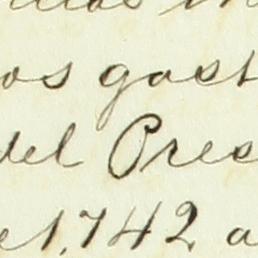 os gast
del Pres
e 1,742 a